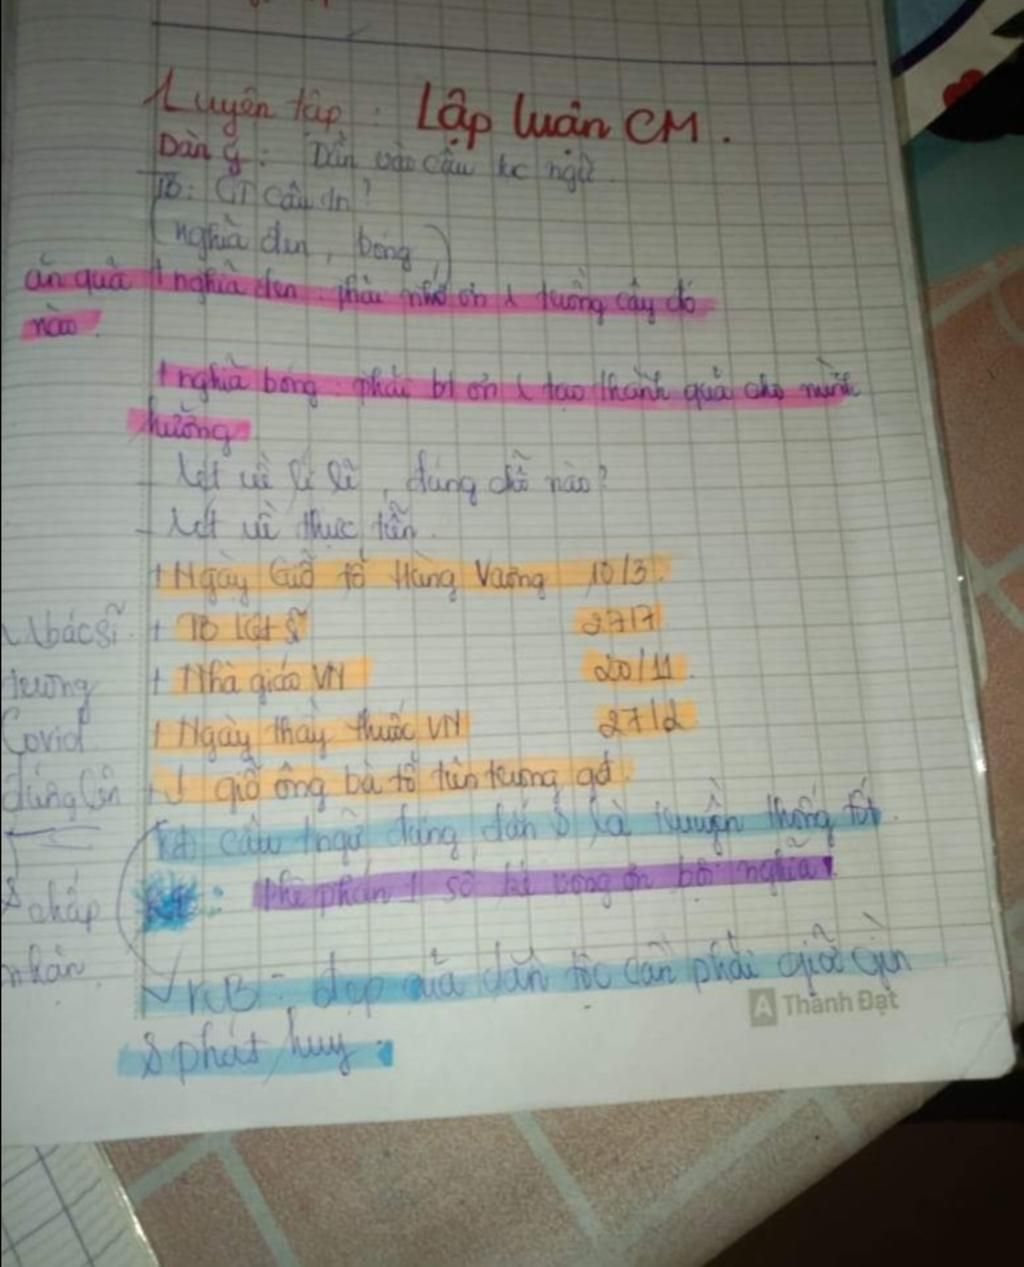 Luyện tập : Lập luận CM.
Dàn ý : Dẫn vào câu tục ngữ.
TB: GT câu tn?
(nghĩa đen, bóng)
ăn quả + nghĩa đen : phải nhớ ơn trồng cây đó
nào.
+ nghĩa bóng : phải bt ơn tạo thành quả cho mình
hưởng
- Xét về lí lẽ, đúng chỗ nào?
- Xét về thực tiễn.
+ Ngày Giỗ tổ Hùng Vương 10/3.
+ TB Liệt Sĩ 27/7
+ Nhà giáo VN 20/11.
+ Ngày thầy thuốc VN 27/2
+ giỗ ông bà tổ tiên trong gđ.
bác sĩ
trong
Covid
đứng lên
chấp
nhận
câu tngữ đúng đắn là truyền thống tốt
: Phê phán 1 số kẻ vong ơn bội nghĩa.
KB : đẹp của dân tộc cần phải giữ gìn
& phát huy.
A Thành Đạt